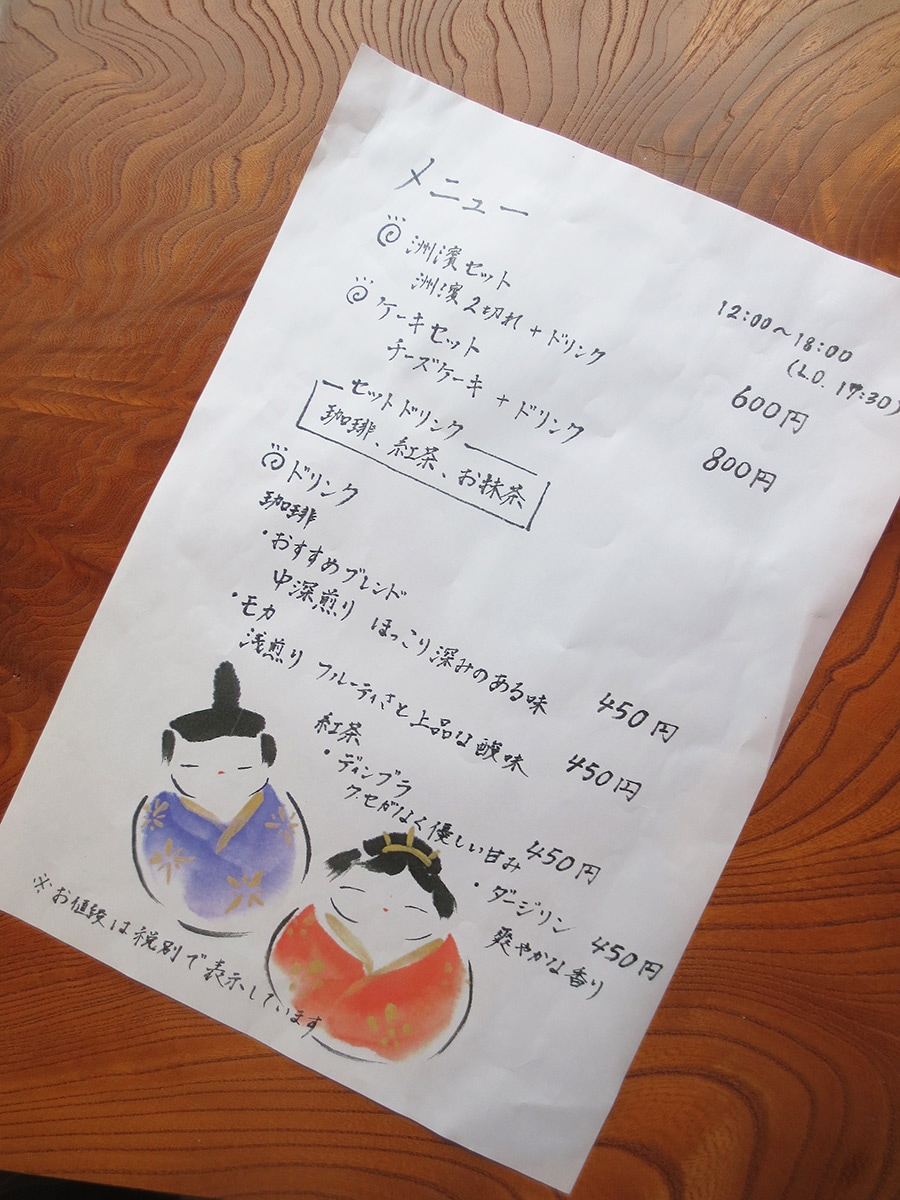 メニュー
12:00〜18:00
(L.O. 17:30)
洲濱セット 600円
洲濱2切れ + ドリンク
ケーキセット 800円
チーズケーキ + ドリンク
セットドリンク
珈琲、紅茶、お抹茶
ドリンク
珈琲
・おすすめブレンド
中深煎り ほっこり深みのある味 450円
・モカ
浅煎り フルーティさと上品な酸味 450円
紅茶
・ディンブラ 450円
クセがなく優しい甘み
・ダージリン 450円
爽やかな香り
※お値段は税別で表示しています